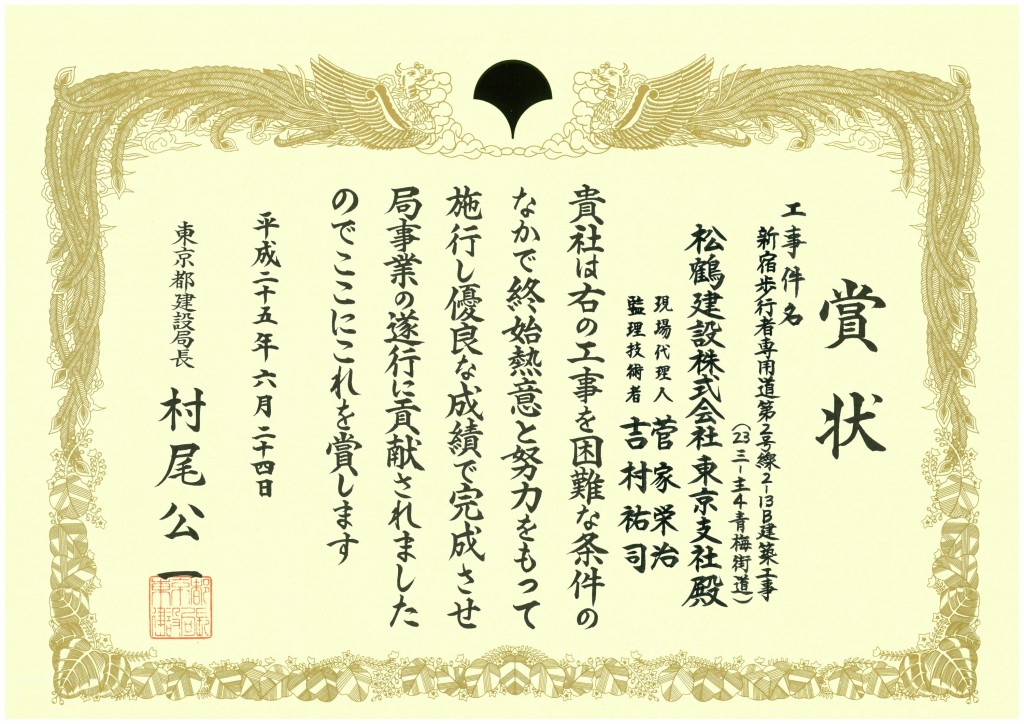 賞状
工事件名
新宿歩行者専用道第2号線2-13B建築工事
(23三-主4青梅街道)
松鶴建設株式会社 東京支社殿
現場代理人 菅家栄治
監理技術者 吉村祐司
貴社は右の工事を困難な条件の
なかで終始熱意と努力をもって
施行し優良な成績で完成させ
局事業の遂行に貢献されました
のでここにこれを賞します
平成二十五年六月二十四日
東京都建設局長 村尾公一